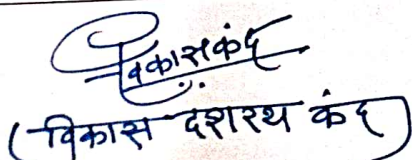 विकास कंद
(विकास दशरथ कंद)